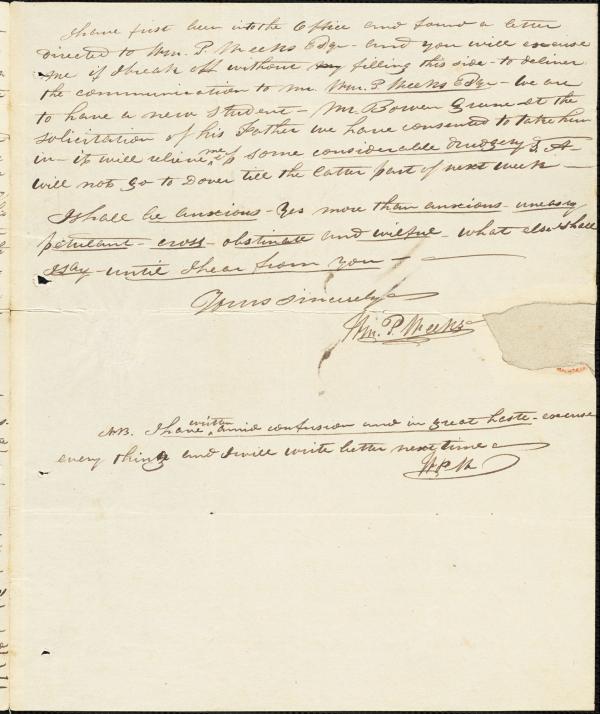 I have first been into the Office and found a letter
directed to Wm. P. Weeks Esqr - and you will excuse
me if I break off without my filling this side - to deliver
the communication to me Wm. P. Weeks Esqr - We are
to have a new student - Mr Bowen at the
solicitation of his Father we have consented to take him
in - it will relieve me of some considerable drudgery
will not go to Dover till the latter part of next week -
I shall be anxious - yes more than anxious - uneasy
petulant - cross - obstinate and wilful - what else shall
I say - until I hear from you -
Yours sincerely
Wm. P. Weeks
NB. I have written amid confusion and in great haste - excuse
every thing and I will write better next time
WPW